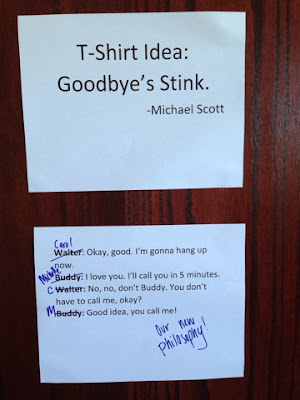 T-Shirt Idea:
Goodbye's Stink.
-Michael Scott
Carol
Walter: Okay, good. I'm gonna hang up
now.
Michelle
Buddy: I love you. I'll call you in 5 minutes.
C Walter: No, no, don't Buddy. You don't
have to call me, okay?
M Buddy: Good idea, you call me!
our new
philosophy!